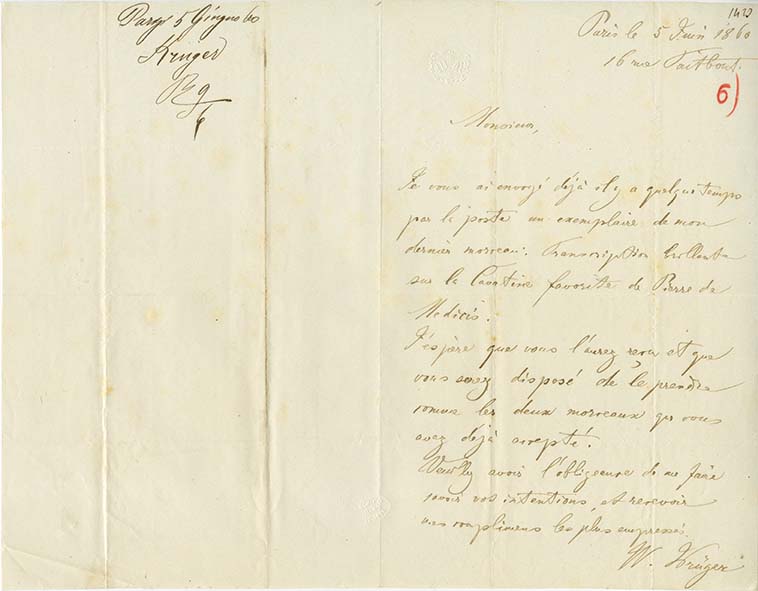 Parigi 5 Giugno 60
Krüger
Rg
6
1423
Paris le 5 Juin 1860
16 rue Taitbout.
6)
Monsieur,
Je vous ai envoyé déjà il y a quelque temps
par la poste un exemplaire de mon
dernier morceau: Transcription brillante
sur la Cavatine favorite de Pierre de
Medicis.
J'espère que vous l'aurez reçu et que
vous serez disposé de le prendre
comme les deux morceaux que vous
avez déjà accepté.
Veuillez avoir l'obligeance de me faire
savoir vos intentions, et recevoir
mes complimens les plus empressés.
W. Krüger